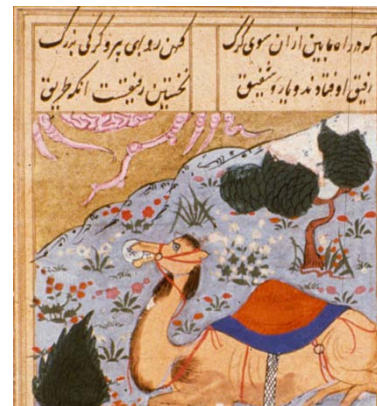 که در راه مابین ازان سوی کرک کهن روبهی پیر و کرکی بزرک
رفیق اوفتادند و یار و شفیق نخستین رفیقست انکه طریق